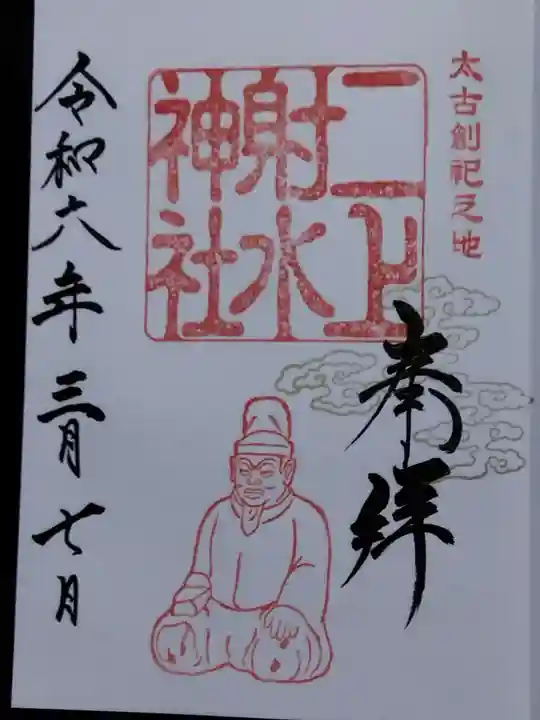 太古創祀之地
奉拝
二上
射水
神社
令和六年三月七日